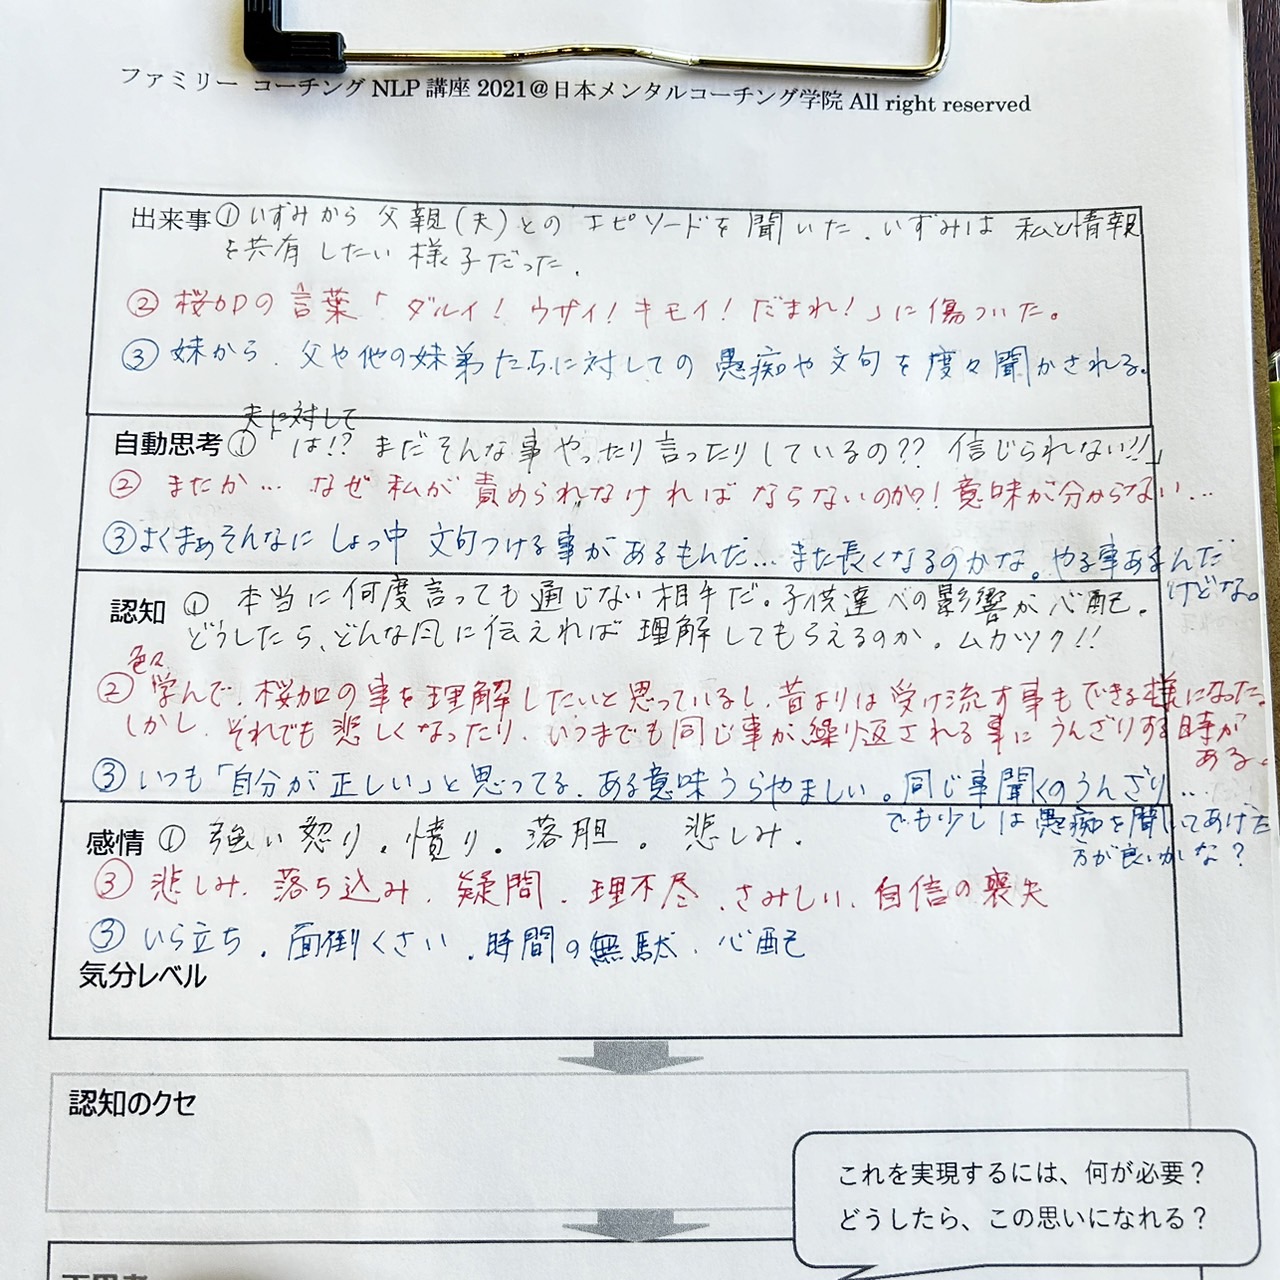 ファミリー コーチング NLP 講座 2021@日本メンタルコーチング学院 All right reserved
出来事 ① いずみから 父親(夫)との エピソードを 聞いた. いずみは 私と情報
を共有 したい 様子だった.
② 桜加の 言葉「ダルイ! ウザイ! キモイ! だまれ!」に 傷ついた。
③ 妹から. 父や他の妹弟たちに対しての 愚痴や 文句を 度々聞かされる。
夫に対して
自動思考 ①「は!? まだそんな事やったり言ったりしているの?? 信じられない!!」
② またか… なぜ 私が 責められなければ ならないのか?! 意味が分からない…
③ よくまぁそんなに しょっ中 文句つける事が あるもんだ… また長くなるのかな。やる事あるんだ
けどな。
認知 ① 本当に 何度言っても 通じない相手だ。子供達への影響が 心配.
どうしたら、どんな風に伝えれば 理解してもらえるのか. ムカツク!!
色々
② 学んで. 桜加の事を理解したいと思っているし. 昔よりは受け流す事もできる様になった。
しかし. それでも悲しくなったり. いつまでも同じ事が繰り返される事に うんざりする時が
ある。
③ いつも「自分が正しい」と思ってる. ある意味うらやましい。同じ事聞くのうんざり…
でも少しは 愚痴を聞いてあげた
方が良いかな?
感情 ① 強い怒り。憤り。落胆。悲しみ.
③ 悲しみ. 落ち込み. 疑問. 理不尽. さみしい. 自信の喪失
③ いら立ち. 面倒くさい. 時間の無駄. 心配
気分レベル
認知のクセ
これを実現するには、何が必要?
どうしたら、この思いになれる?